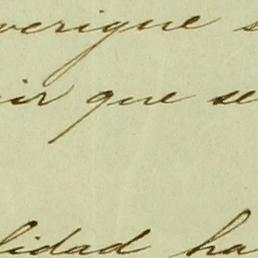 verigue s
ir que se
lidad ha